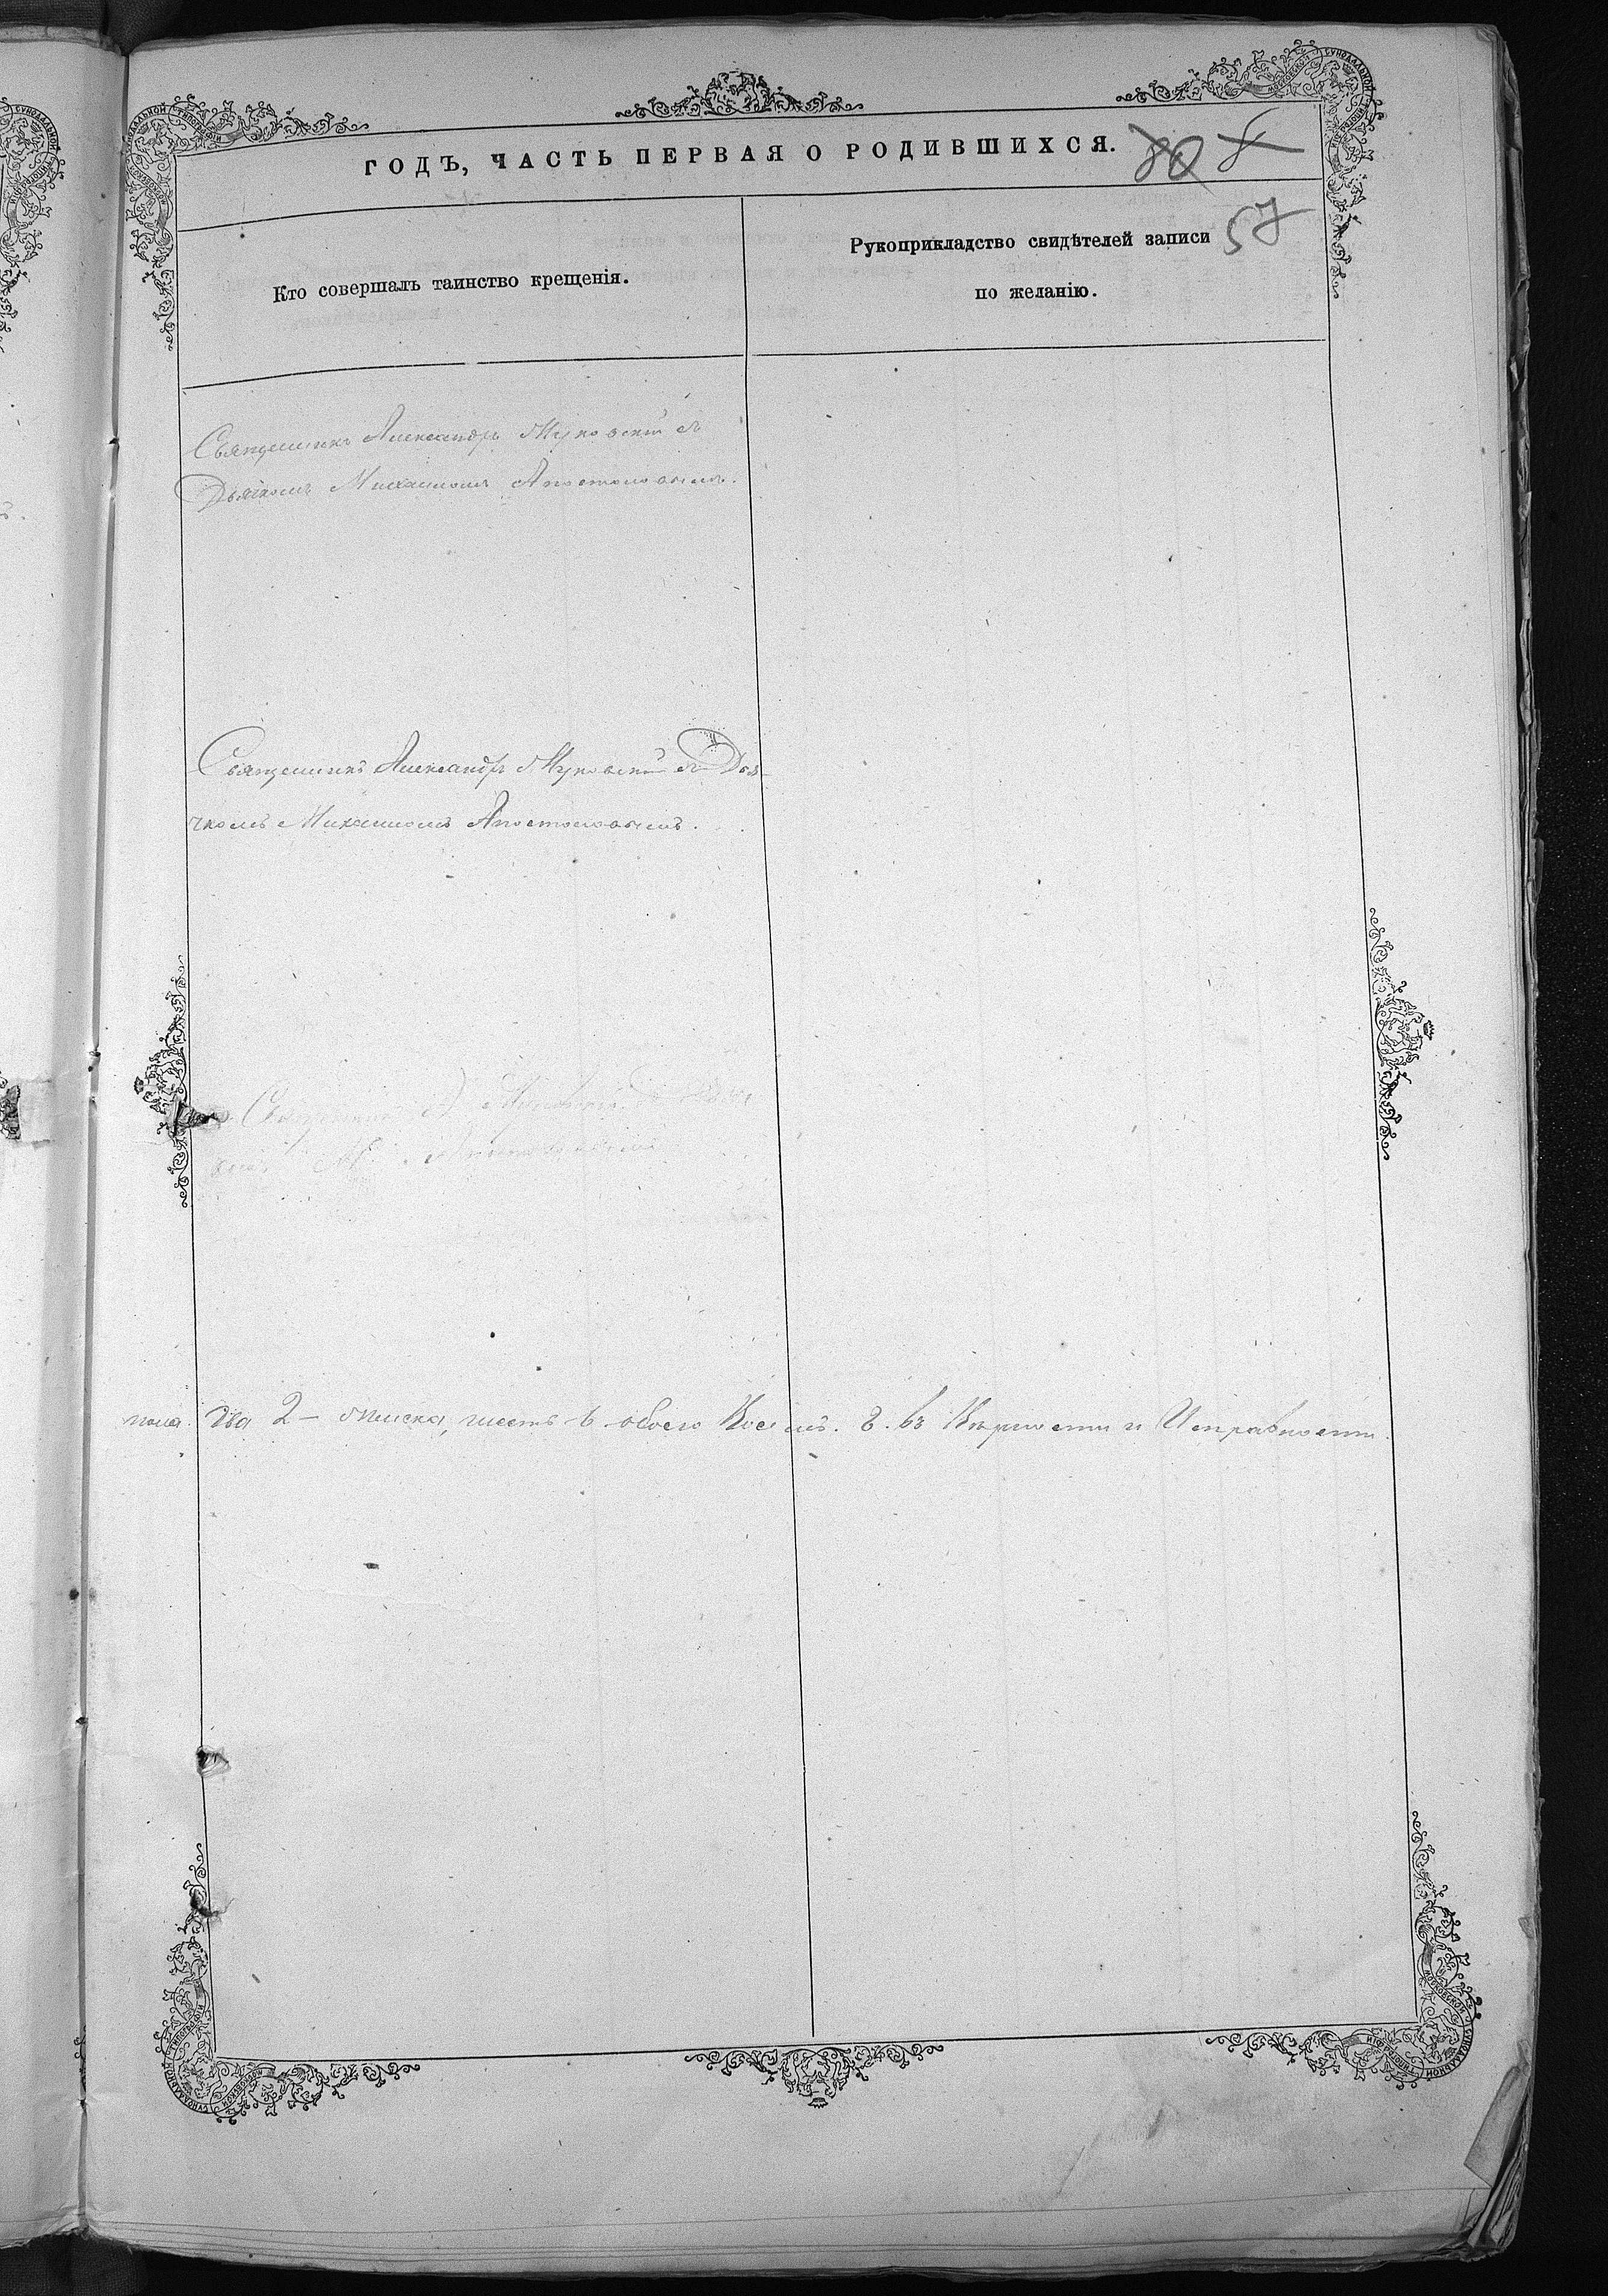 ГОДЪ, ЧАСТЬ ПЕРВАЯ О РОДИВШИХСЯ.
80
57
Кто совершалъ таинство крещенія.
Рукоприкладство свидѣтелей записи
по желанію.
Священникъ Александръ Жуковскій съ
Дьячкомъ Михаиломъ Апостоловымъ.
Священникъ Александръ Жуковскій съ Дья-
чкомъ Михаиломъ Апостоловымъ.
Священникъ
пола два 2 – женска, шесть 6 обоего Восемь. 8. въ Вѣрности и Исправности